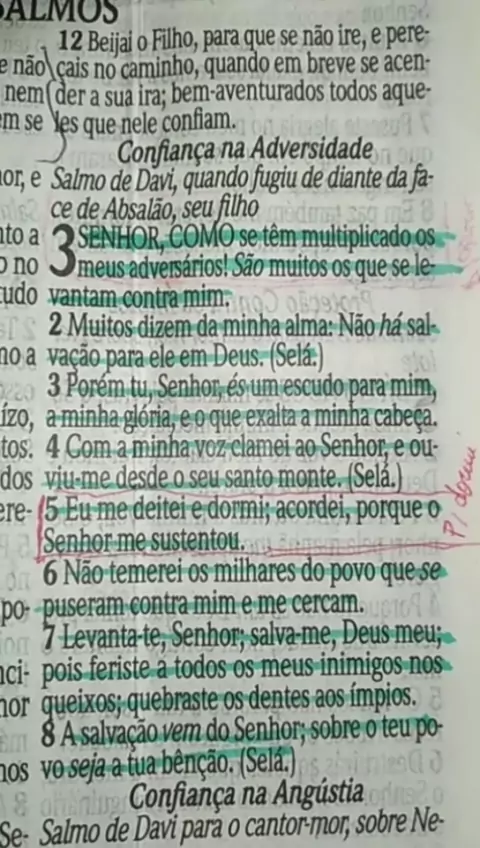 SALMOS
12 Beijai o Filho, para que se não ire, e pere-
e não çais no caminho, quando em breve se acen-
nem der a sua ira; bem-aventurados todos aque-
em se les que nele confiam.
Confiança na Adversidade
or, e Salmo de Davi, quando fugiu de diante da fa-
ce de Absalão, seu filho
nto a 3 SENHOR, COMO se têm multiplicado os
o no meus adversários! São muitos os que se le-
tudo vantam contra mim.
2 Muitos dizem da minha alma: Não há sal-
no a vação para ele em Deus. (Selá.)
3 Porém tu, Senhor, és um escudo para mim,
ízo, a minha glória, e o que exalta a minha cabeça.
tos. 4 Com a minha voz clamei ao Senhor, e ou-
dos viu-me desde o seu santo monte. (Selá.)
ere- 5 Eu me deitei e dormi; acordei, porque o
Senhor me sustentou.
P/ dormi
6 Não temerei os milhares do povo que se
po- puseram contra mim e me cercam.
7 Levanta-te, Senhor; salva-me, Deus meu;
nci- pois feriste a todos os meus inimigos nos
hor queixos; quebraste os dentes aos ímpios.
8 A salvação vem do Senhor; sobre o teu po-
nos vo seja a tua bênção. (Selá.)
Confiança na Angústia
Se- Salmo de Davi para o cantor-mor, sobre Ne-